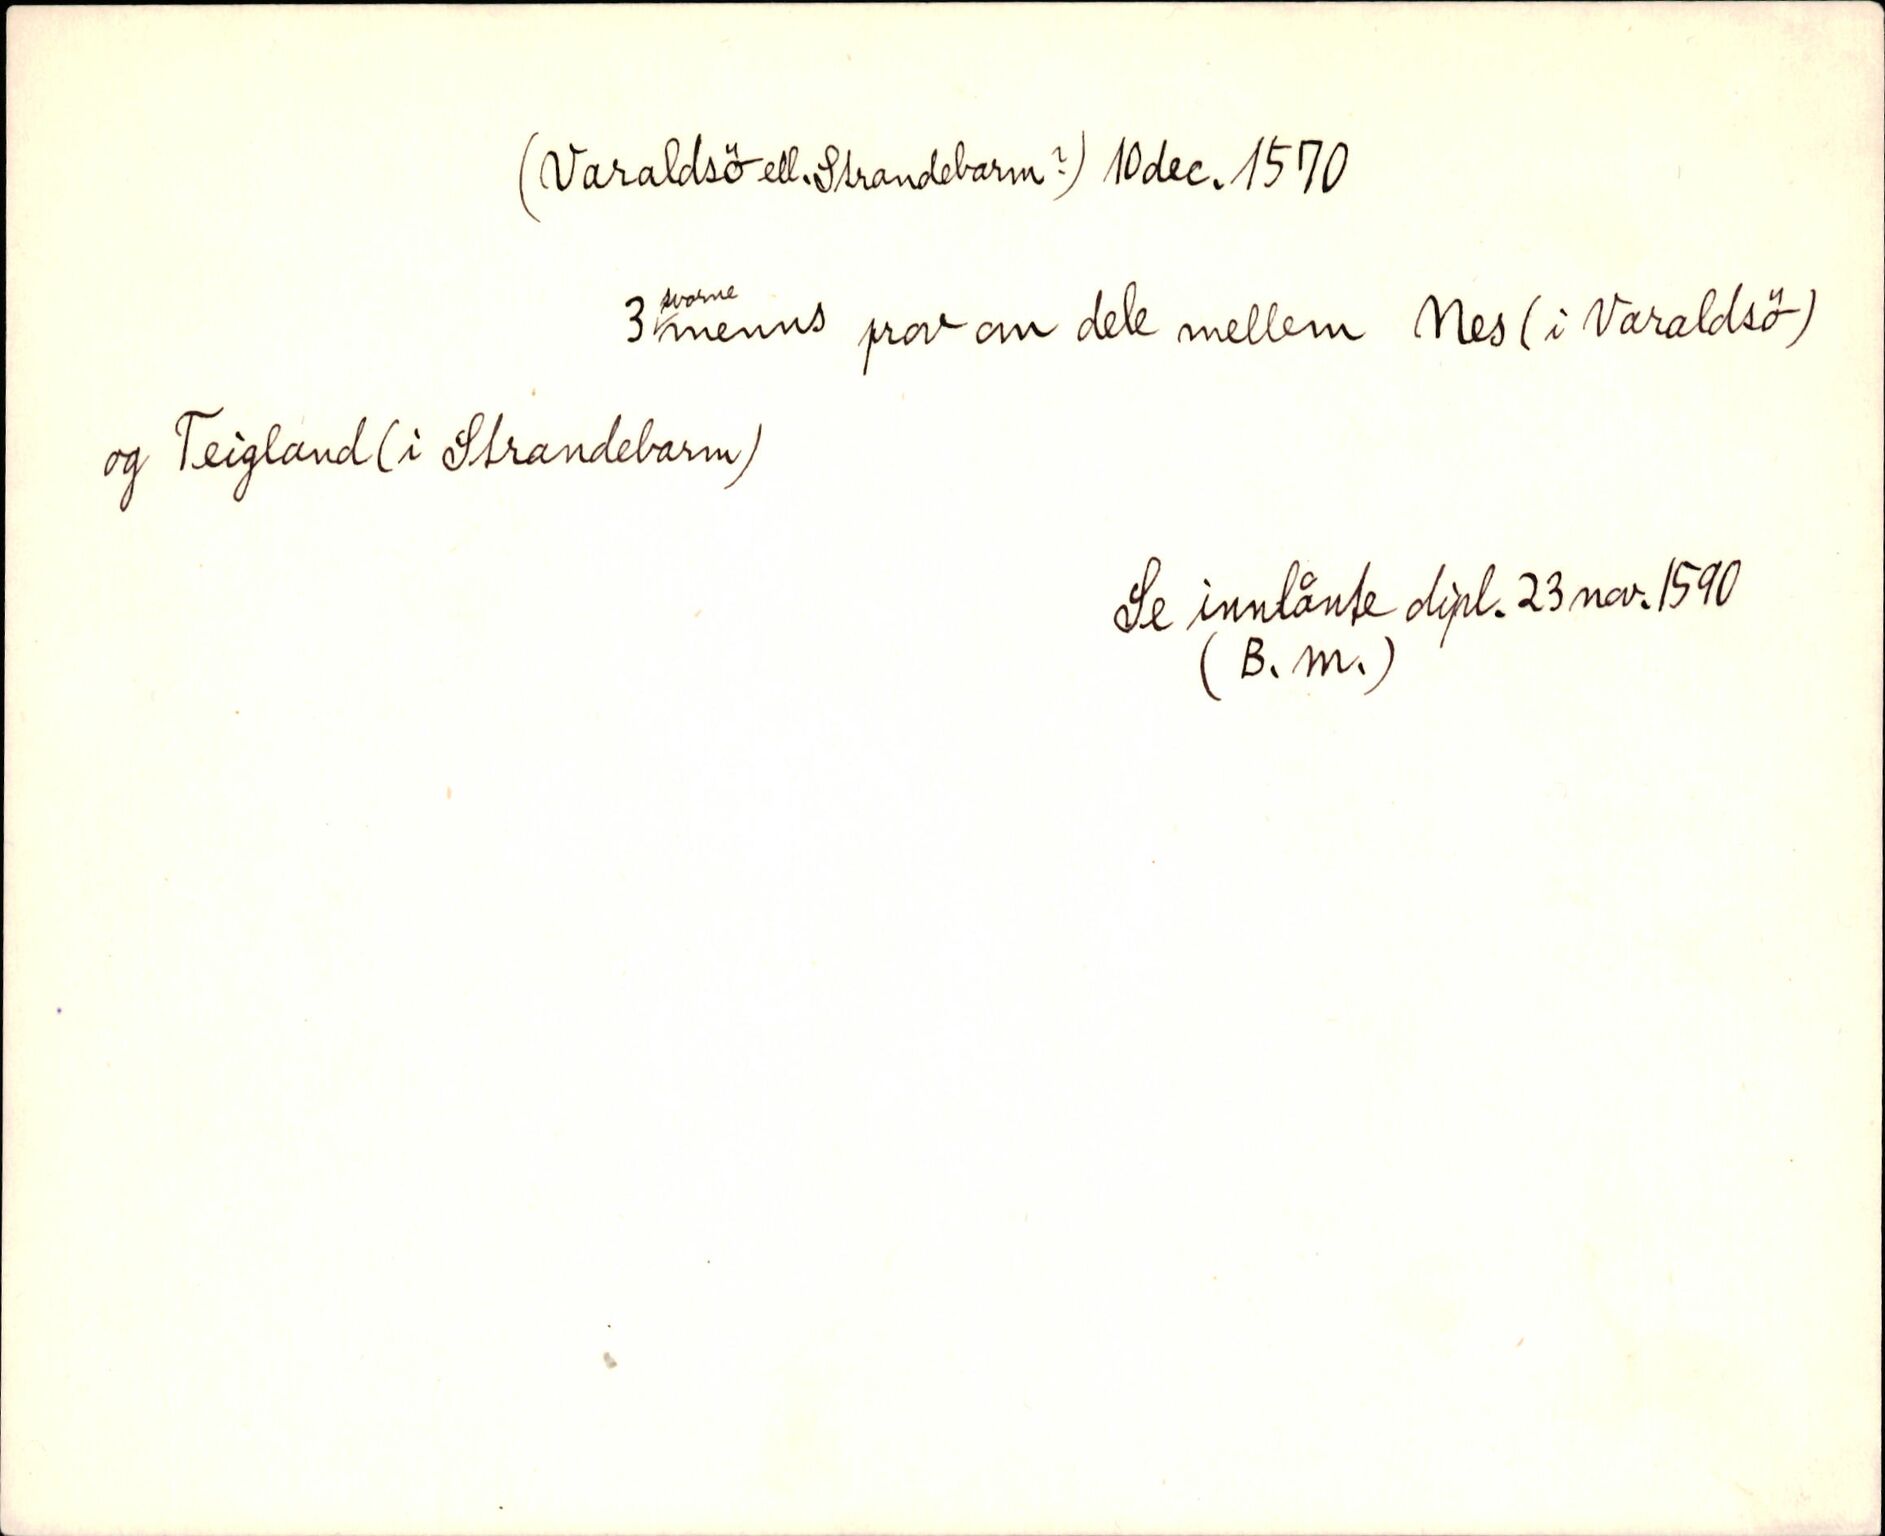 (Varaldsö ell. Strandebarm?) 10 dec. 1570
3 svorne menns prov om dele mellem Nes (i Varaldsö)
og Teigland (i Strandebarm)
Se innlånte dipl. 23 nov. 1590
(B. M.)